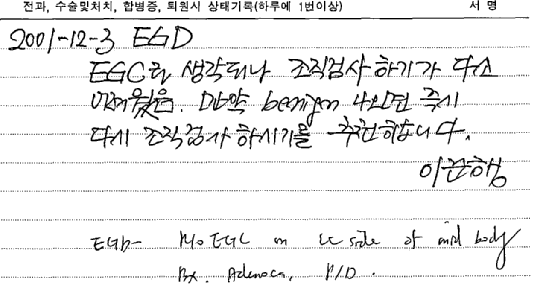 전과, 수술및처치, 합병증, 퇴원시 상태기록(하루에 1번이상) 서 명
2001-12-3 EGD
EGC로 생각되나 조직검사 하기가 다소
어려웠음. 만약 benign 나오면 즉시
다시 조직검사 하시기를 추천합니다.
EGD- R/o EGC on LC side of mid body
Bx. Adenoca, P/D.